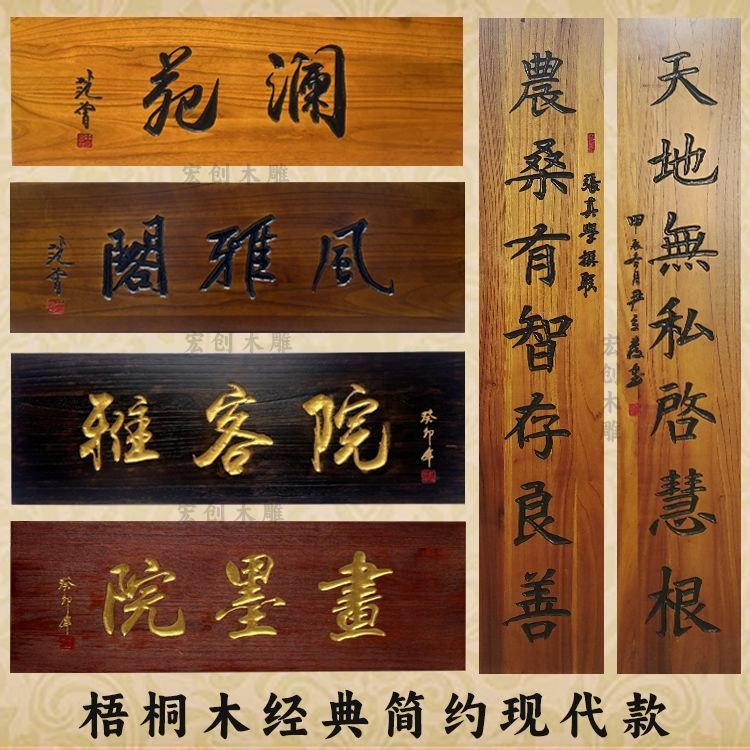 澜苑
范曾
宏创木雕
風雅閣
范曾
宏创木雕
雅客院
癸卯年
宏创木雕
畫墨院
癸卯年
天地無私启慧根
宏创木雕
農桑有智存良善
張真學撰联
梧桐木经典简约现代款